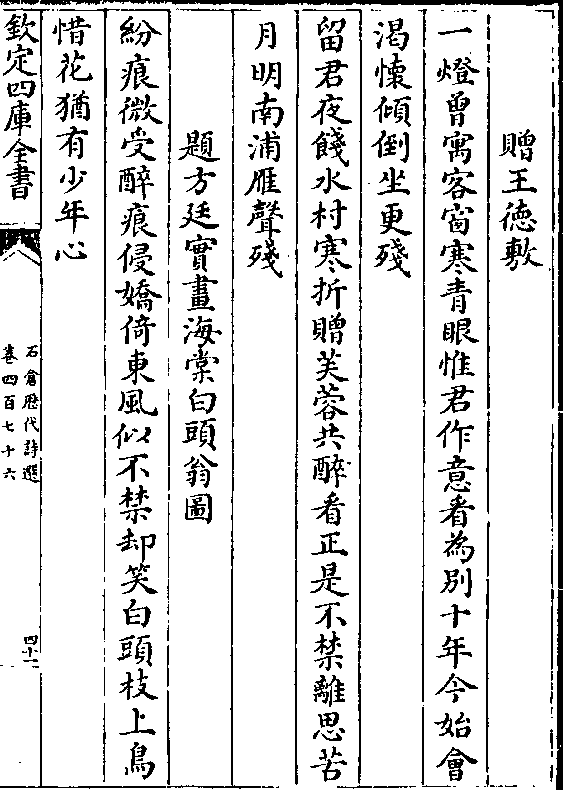 贈王徳敷
一燈曾寓客窗寒青眼惟君作意看為別十年今始會
渴懐傾倒坐更殘
留君夜餞水村寒折贈芙蓉共醉看正是不禁離思苦
月明南浦雁聲殘
題方廷實畫海棠白頭翁圖
粉痕微受醉痕侵嬌倚東風似不禁却笑白頭枝上鳥
惜花猶有少年心
欽定四庫全書
石倉歴代詩選
卷四百七十六
四十一